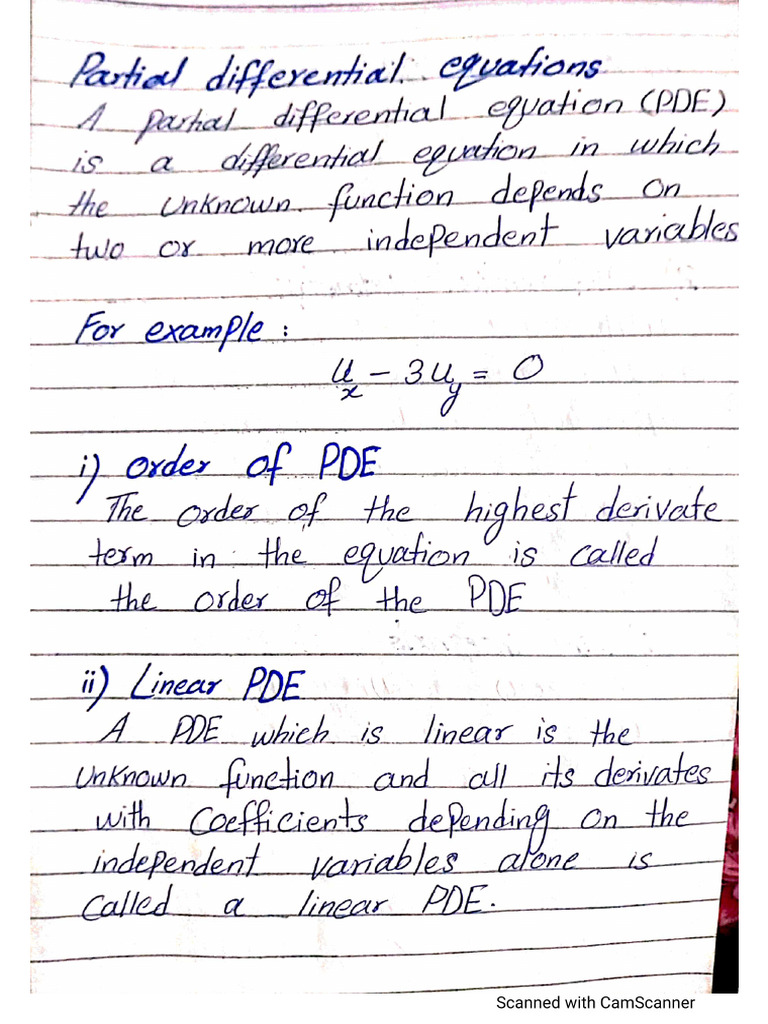 Partial differential equations
A partial differential equation (PDE)
is a differential equation in which
the unknown function depends on
two or more independent variables
For example :
u_x - 3u_y = 0
i) order of PDE
The order of the highest derivate
term in the equation is called
the order of the PDE
ii) Linear PDE
A PDE which is linear is the
unknown function and all its derivates
with coefficients depending on the
independent variables alone is
called a linear PDE.
Scanned with CamScanner